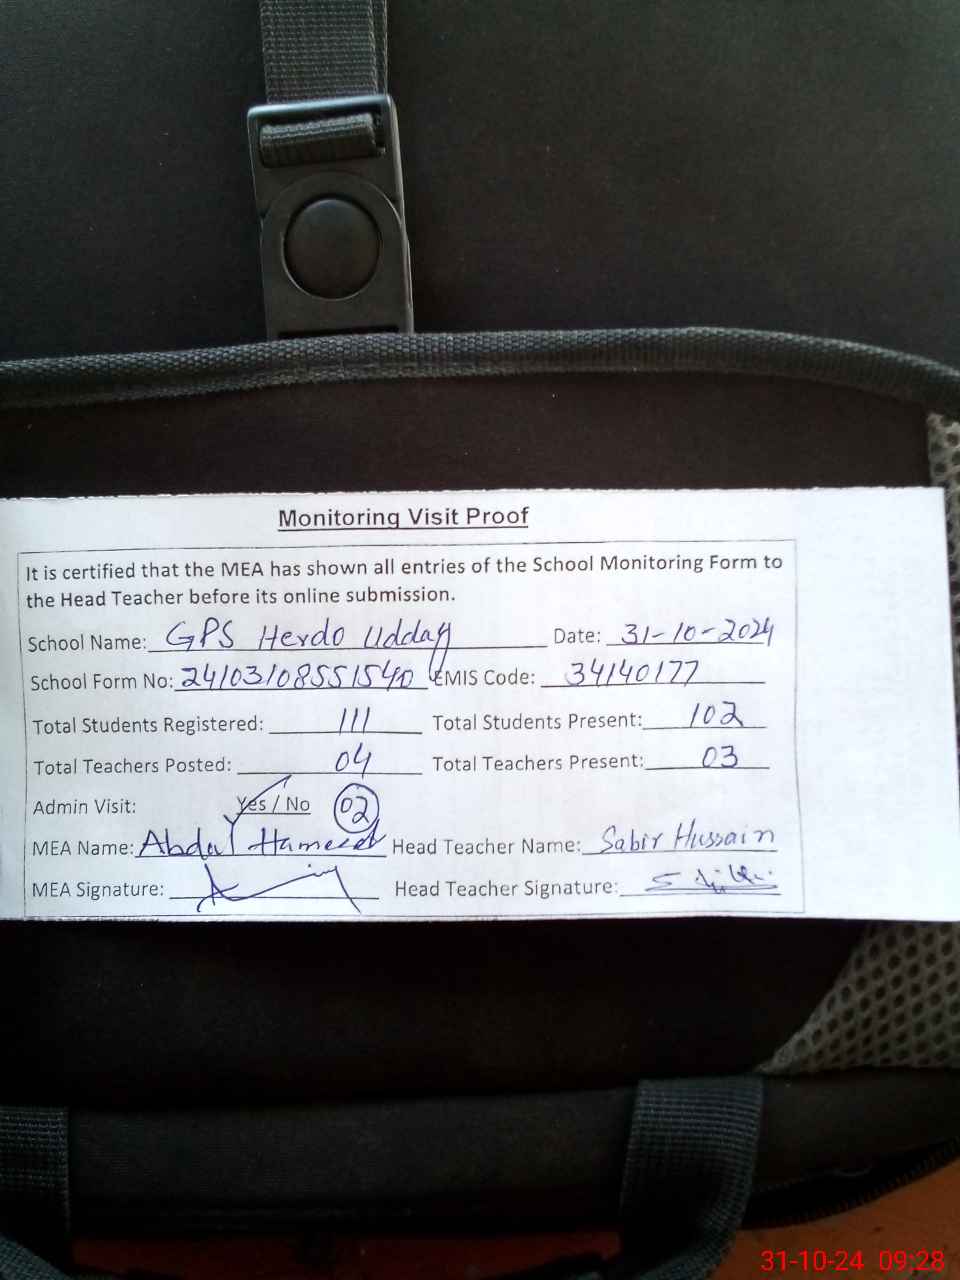 Monitoring Visit Proof
It is certified that the MEA has shown all entries of the School Monitoring Form to
the Head Teacher before its online submission.
School Name: GPS Herdo Udday Date: 31-10-2024
School Form No: 24103108551540 EMIS Code: 34140177
Total Students Registered: 111 Total Students Present: 102
Total Teachers Posted: 04 Total Teachers Present: 03
Admin Visit: Yes / No 02
MEA Name: Abdul Hameed Head Teacher Name: Sabir Hussain
MEA Signature: Head Teacher Signature:
31-10-24 09:28